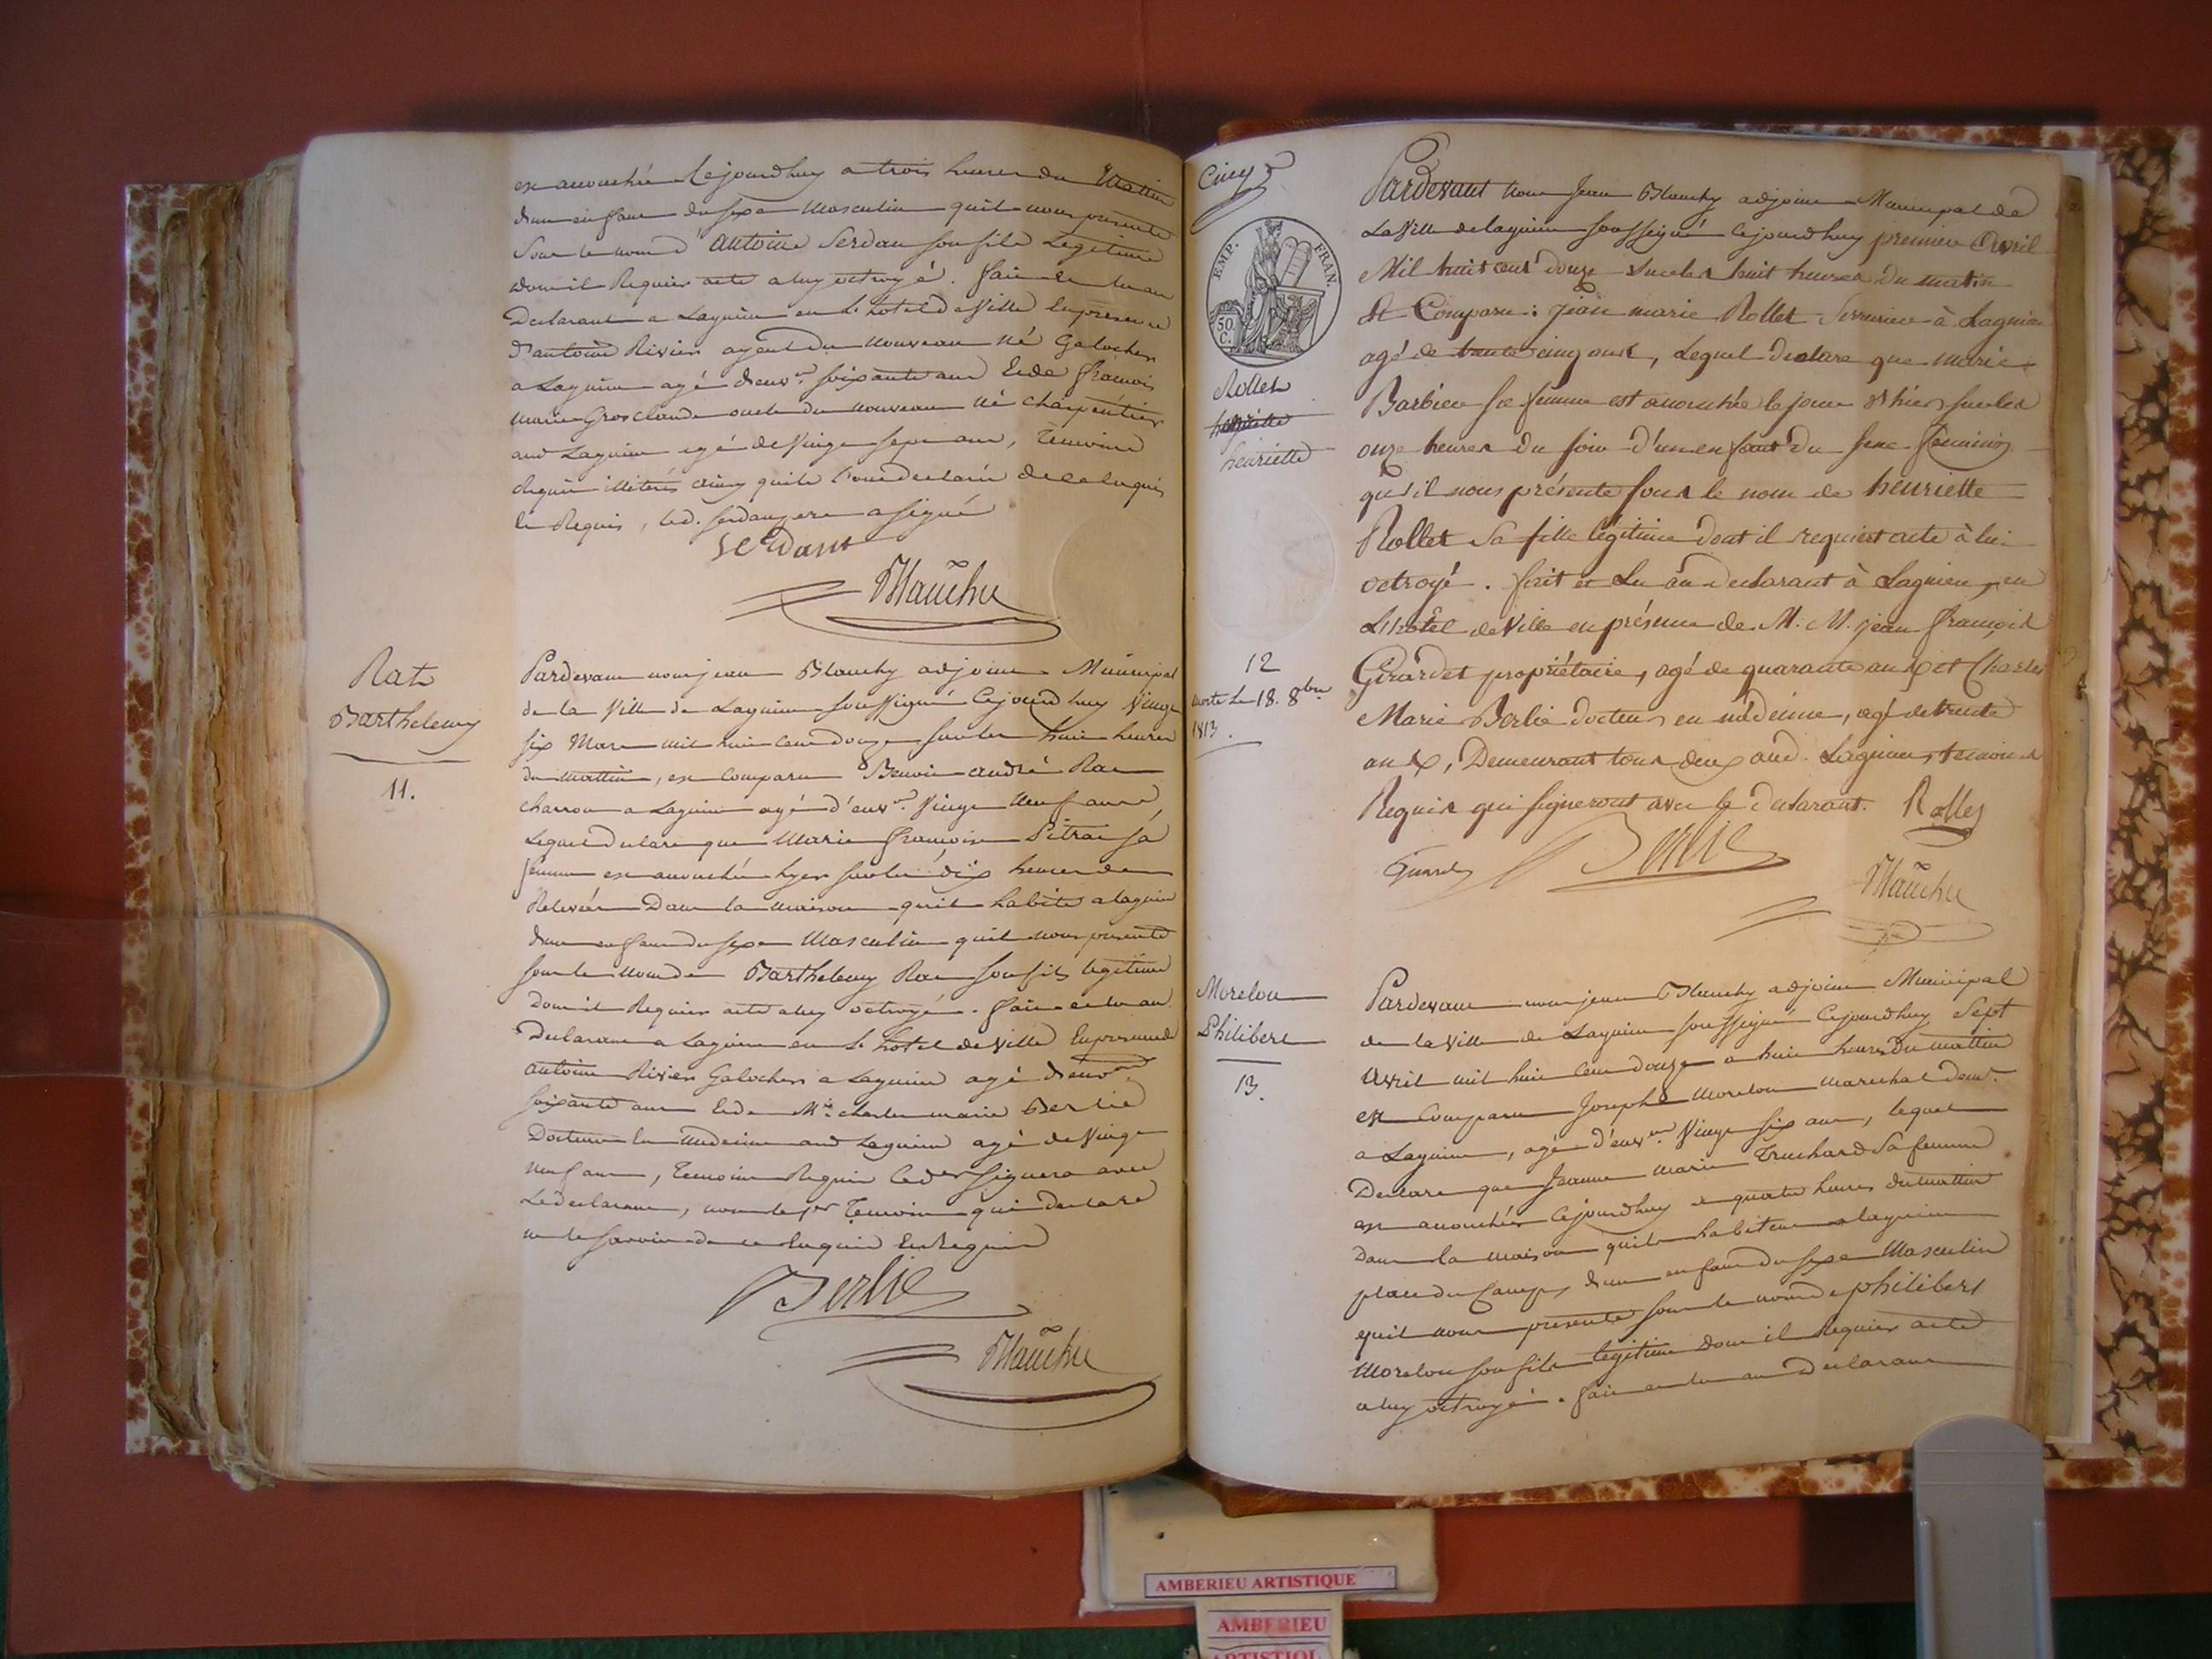 est accouchée Cejourdhuy a trois heures du Matin
dun enfant du sexe Masculin quil nous presente
Sous le nom d'antoine Serdan son fils Legitime
dont il Requier acte a luy octroyé. fait et lu au
Declarant a Lagnieu en L'hotel de Ville En presence
D'antoine Rivier ayeul du nouveau né Galochier
a Lagnieu agé d'env.on soixante ans Et de françois
marie Grosclaude oncle du nouveau né charpentier
aud Lagnieu agé de Vingt sept ans, Temoins
Requis illiterés ainsy quils l'ont declaré de ce Enquis
et Requis, led. Serdan pere a signé
Serdant
Blanchy
Rat
Barthelemy
11.
Pardevant nous jean Blanchy adjoint Municipal
de la Ville de Lagnieu soussigné Cejourdhuy Vingt
six Mars mil huit cent douze sur les huit heures
du mattin, est Comparu Benoit andré Rat
charron a Lagnieu agé d'env.on Vingt Neuf ans
Lequel declare que Marie françoise sa
femme est accouchée hyer sur les dix heures de
Relevée Dans la maison quil habite a lagnieu
dun enfant du sexe Masculin quil nous presente
sous le nom de Barthelemy Rat son fils legitime
dont il Requier acte a luy octroyé. fait et lu au
Declarant a Lagnieu en L'hotel de Ville En presence
d'antoine Rivier Galochier a Lagnieu agé d'env.on
soixante ans Et de Mr. charles marie Berlie
Docteur En medecine aud Lagnieu agé de Vingt
neuf ans, Temoins Requis Ce d.er signera avec
Le declarant, non le 1er Temoin qui declare
ne le savoir de ce Enquis Et Requis
Berlie
Blanchy
Cinq
EMP. FRAN.
50 C.
Rollet
henriette
henriette
12
morte Le 18. 8bre
1813.
Pardevant nous Jean Blanchy adjoint Municipal de
La Ville de lagnieu soussigné Cejourd'huy premier Avril
Mil huit cent douze sur les huit heures du matin
Est Comparu: jean marie Rollet Serrurier à Lagnieu
agé de trente cinq ans, Lequel declare que marie
Barbier sa femme est accouchée le jour d'hier sur les
onze heures du soir d'un enfant du sexe feminin
qu'il nous présente sous le nom de henriette
Rollet sa fille légitime dont il requiert acte à lui
octroyé. fait et Lu au declarant à Lagnieu, en
L'hotel de Ville en présence de M. M. jean françois
Girardet propriétaire, agé de quarante ans et Charles
Marie Berlie docteur en médecine, agé de trente
ans, Demeurant tous deux aud. Lagnieu, temoins
Requis qui signeront avec le declarant. Rollet
Girardet Berlie
Blanchy
Morelon
Philibert
13.
Pardevant nous jean Blanchy adjoint Municipal
de la Ville de Lagnieu soussigné Cejourdhuy Sept
avril mil huit Cent douze a huit heures du mattin
est Comparu Joseph Morelon marechal dem.t
a Lagnieu, agé d'env.on Vingt six ans, lequel
Declare que Jeanne marie Truchard Sa femme
est accouchée Cejourdhuy a quatre heures du mattin
Dans la maison quils habitent a lagnieu
place du Camp, dun enfant du sexe Masculin
quil nous presente sous le nom de philibert
Morelon son fils legitime dont il Requier acte
a luy octroyé. fait et lu au Declarant
AMBERIEU ARTISTIQUE
AMBERIEU
ARTISTIQU